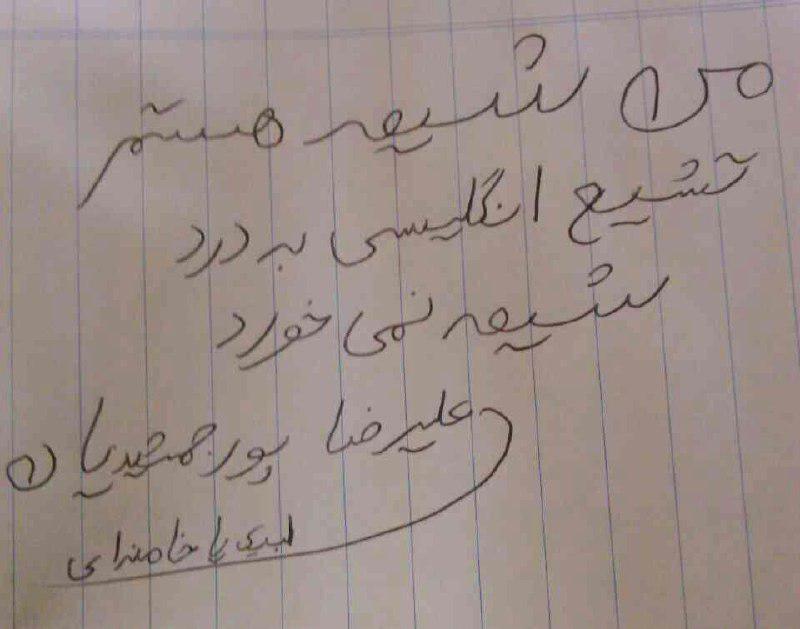 من شیعه هستم
تشیع انگلیسی به درد
شیعه نمی خورد
علیرضا پور جمشیدیان
لبیک یا خامنه ای